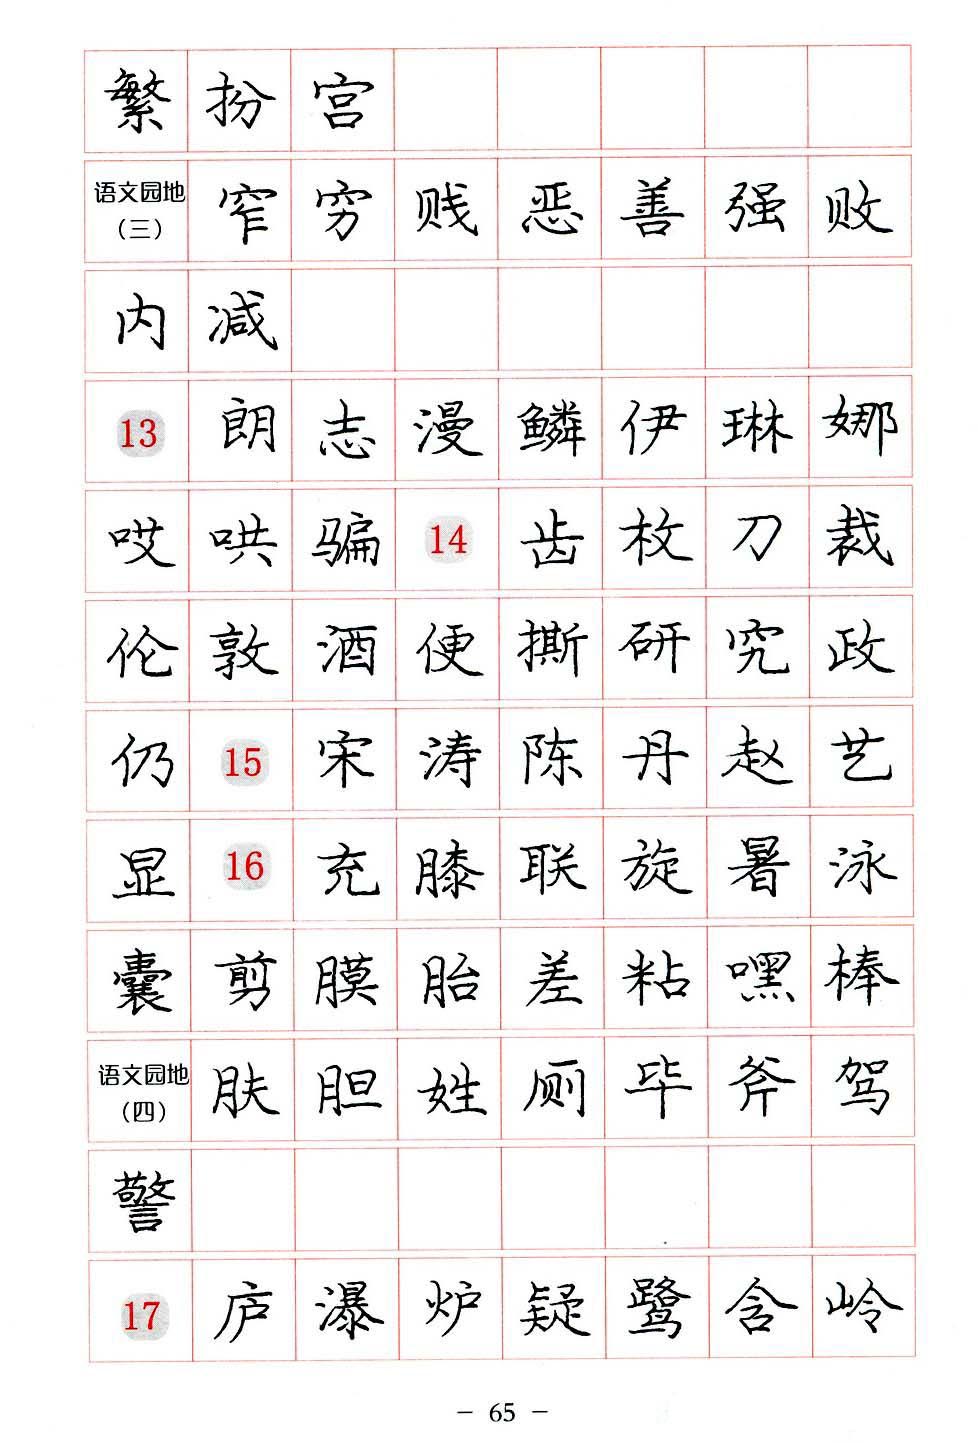 繁 扮 宫
语文园地(三) 窄 穷 贱 恶 善 强 败
内 减
13 朗 志 漫 鳞 伊 琳 娜
哎 哄 骗 14 齿 枚 刀 裁
伦 敦 酒 便 撕 研 究 政
仍 15 宋 涛 陈 丹 赵 艺
显 16 充 膝 联 旋 暑 泳
囊 剪 膜 胎 差 粘 嘿 棒
语文园地(四) 肤 胆 姓 厕 毕 斧 驾
警
17 庐 瀑 炉 疑 鹭 含 岭
- 65 -